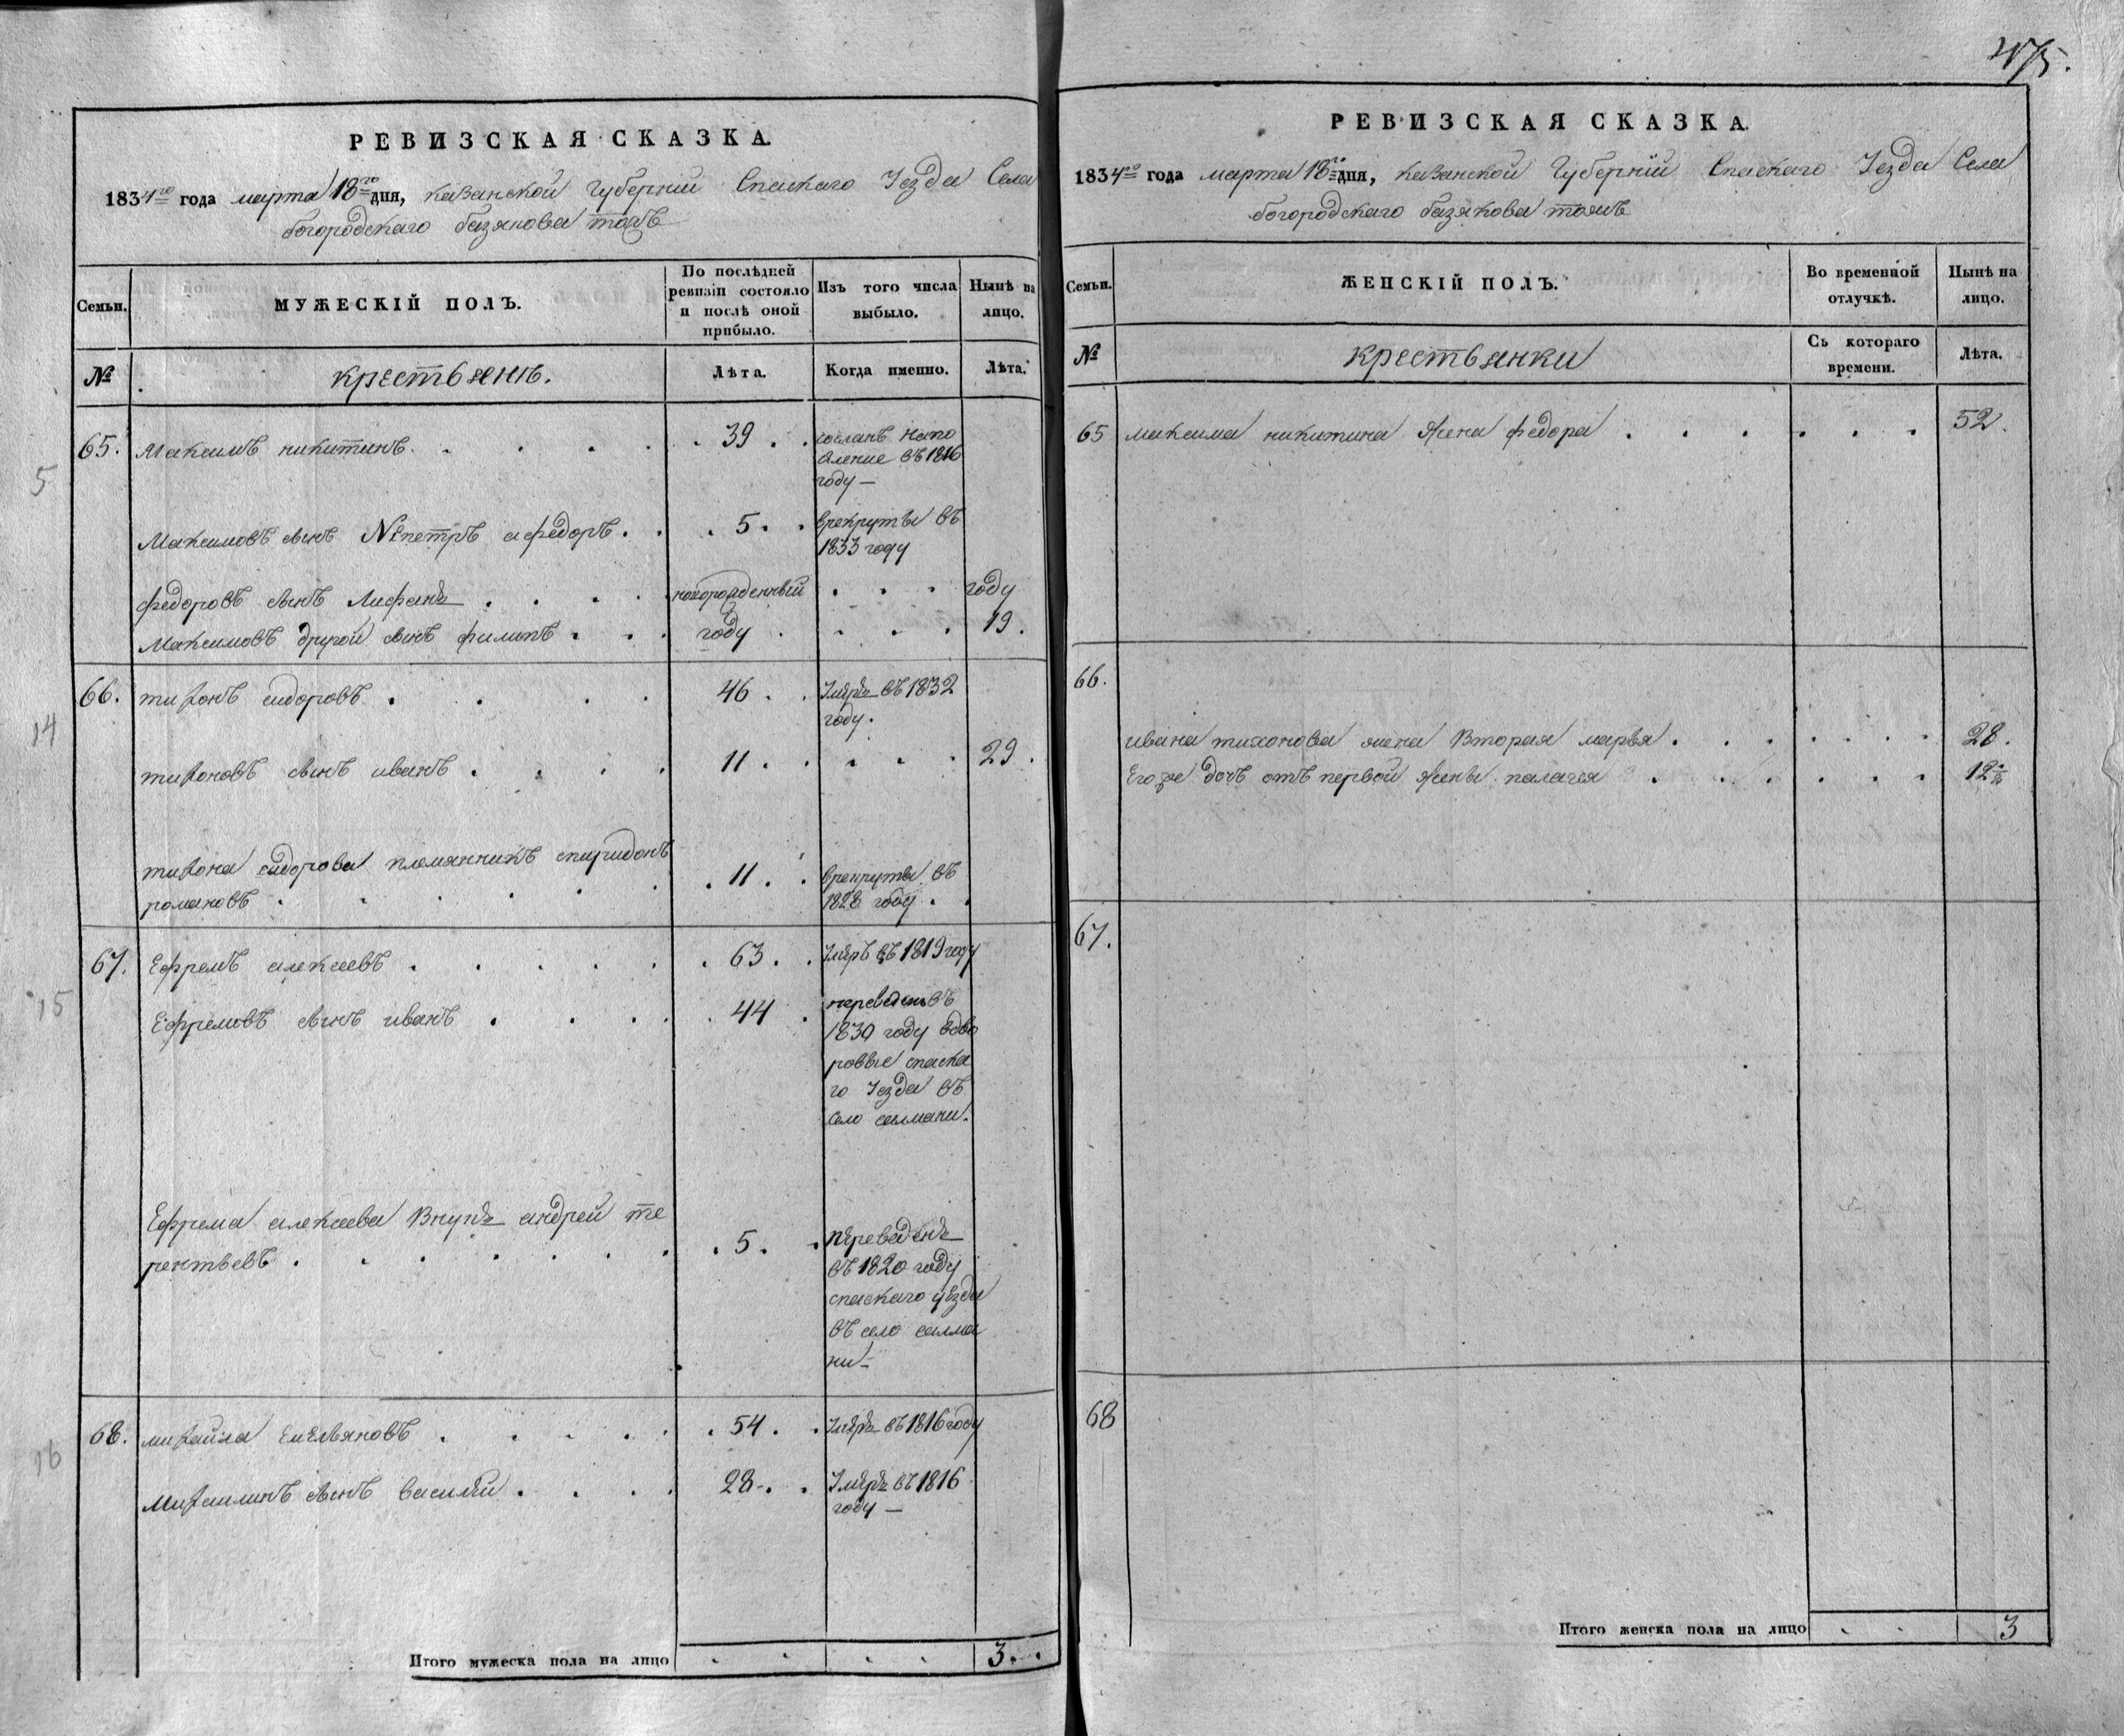 475.
РЕВИЗСКАЯ СКАЗКА.
1834го года марта 18го дня, казанской Губернии Спаскаго Уезда Села
богородскаго базякова тожъ
Семьи. МУЖЕСКІЙ ПОЛЪ. По послѣдней ревизіи состояло и послѣ оной прибыло. Изъ того числа выбыло. Нынѣ на лицо.
№ крестьянѣ. Лѣта. Когда именно. Лѣта.
65. Максимъ никитинъ 39 сосланъ напо
селение въ 1816
году
5
Максимовъ сынъ петръ а федоръ 5 врекруты въ
1833 году
федоровъ сынъ новорожденный году
Максимовъ другой сынъ филипъ году 19
66. тихонъ сидоровъ 46 Умръ въ 1832
году
14
тихоновъ сынъ иванъ 11 29
тихона сидорова племянникъ спиридонъ
романовъ 11 врекруты въ
1828 году
67. Ефремъ алексеевъ 63 Умръ въ 1819 году
15
Ефремовъ сынъ иванъ 44 переведенъ въ
1830 году вдво
ровые спаска
го Уезда въ
село салмани.
Ефрема алексеева внукъ андрей те
рентьевъ 5 переведенъ
въ 1820 году
спаскаго уезда
въ село салма
ни
68. михайла емельяновъ 54 Умръ въ 1816 году
16
михаилинъ сынъ василий 28 Умръ въ 1816
году
Итого мужеска пола на лицо 3
РЕВИЗСКАЯ СКАЗКА.
1834го года марта 18го дня, казанской Губернии Спаскаго Уезда Села
богородскаго базякова тожъ
Семьи. ЖЕНСКІЙ ПОЛЪ. Во временной отлучкѣ. Нынѣ на лицо.
№ крестьянки Съ котораго времени. Лѣта.
65 максима никитина жена федора 52.
66.
ивана тихонова жена вторая марья 28.
Его же дочь отъ первой жены палагея 12
67.
68
Итого женска пола на лицо 3